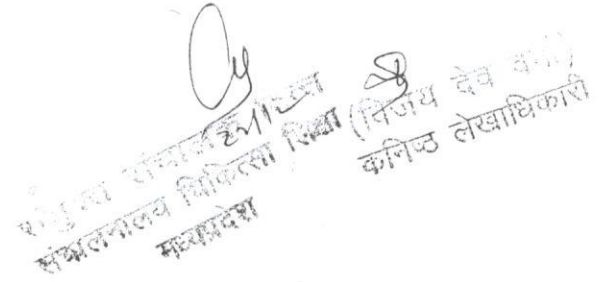 संयुक्त संचालक
संचालनालय चिकित्सा शिक्षा
मध्यप्रदेश
(विजय देव वर्मा)
कनिष्ठ लेखाधिकारी